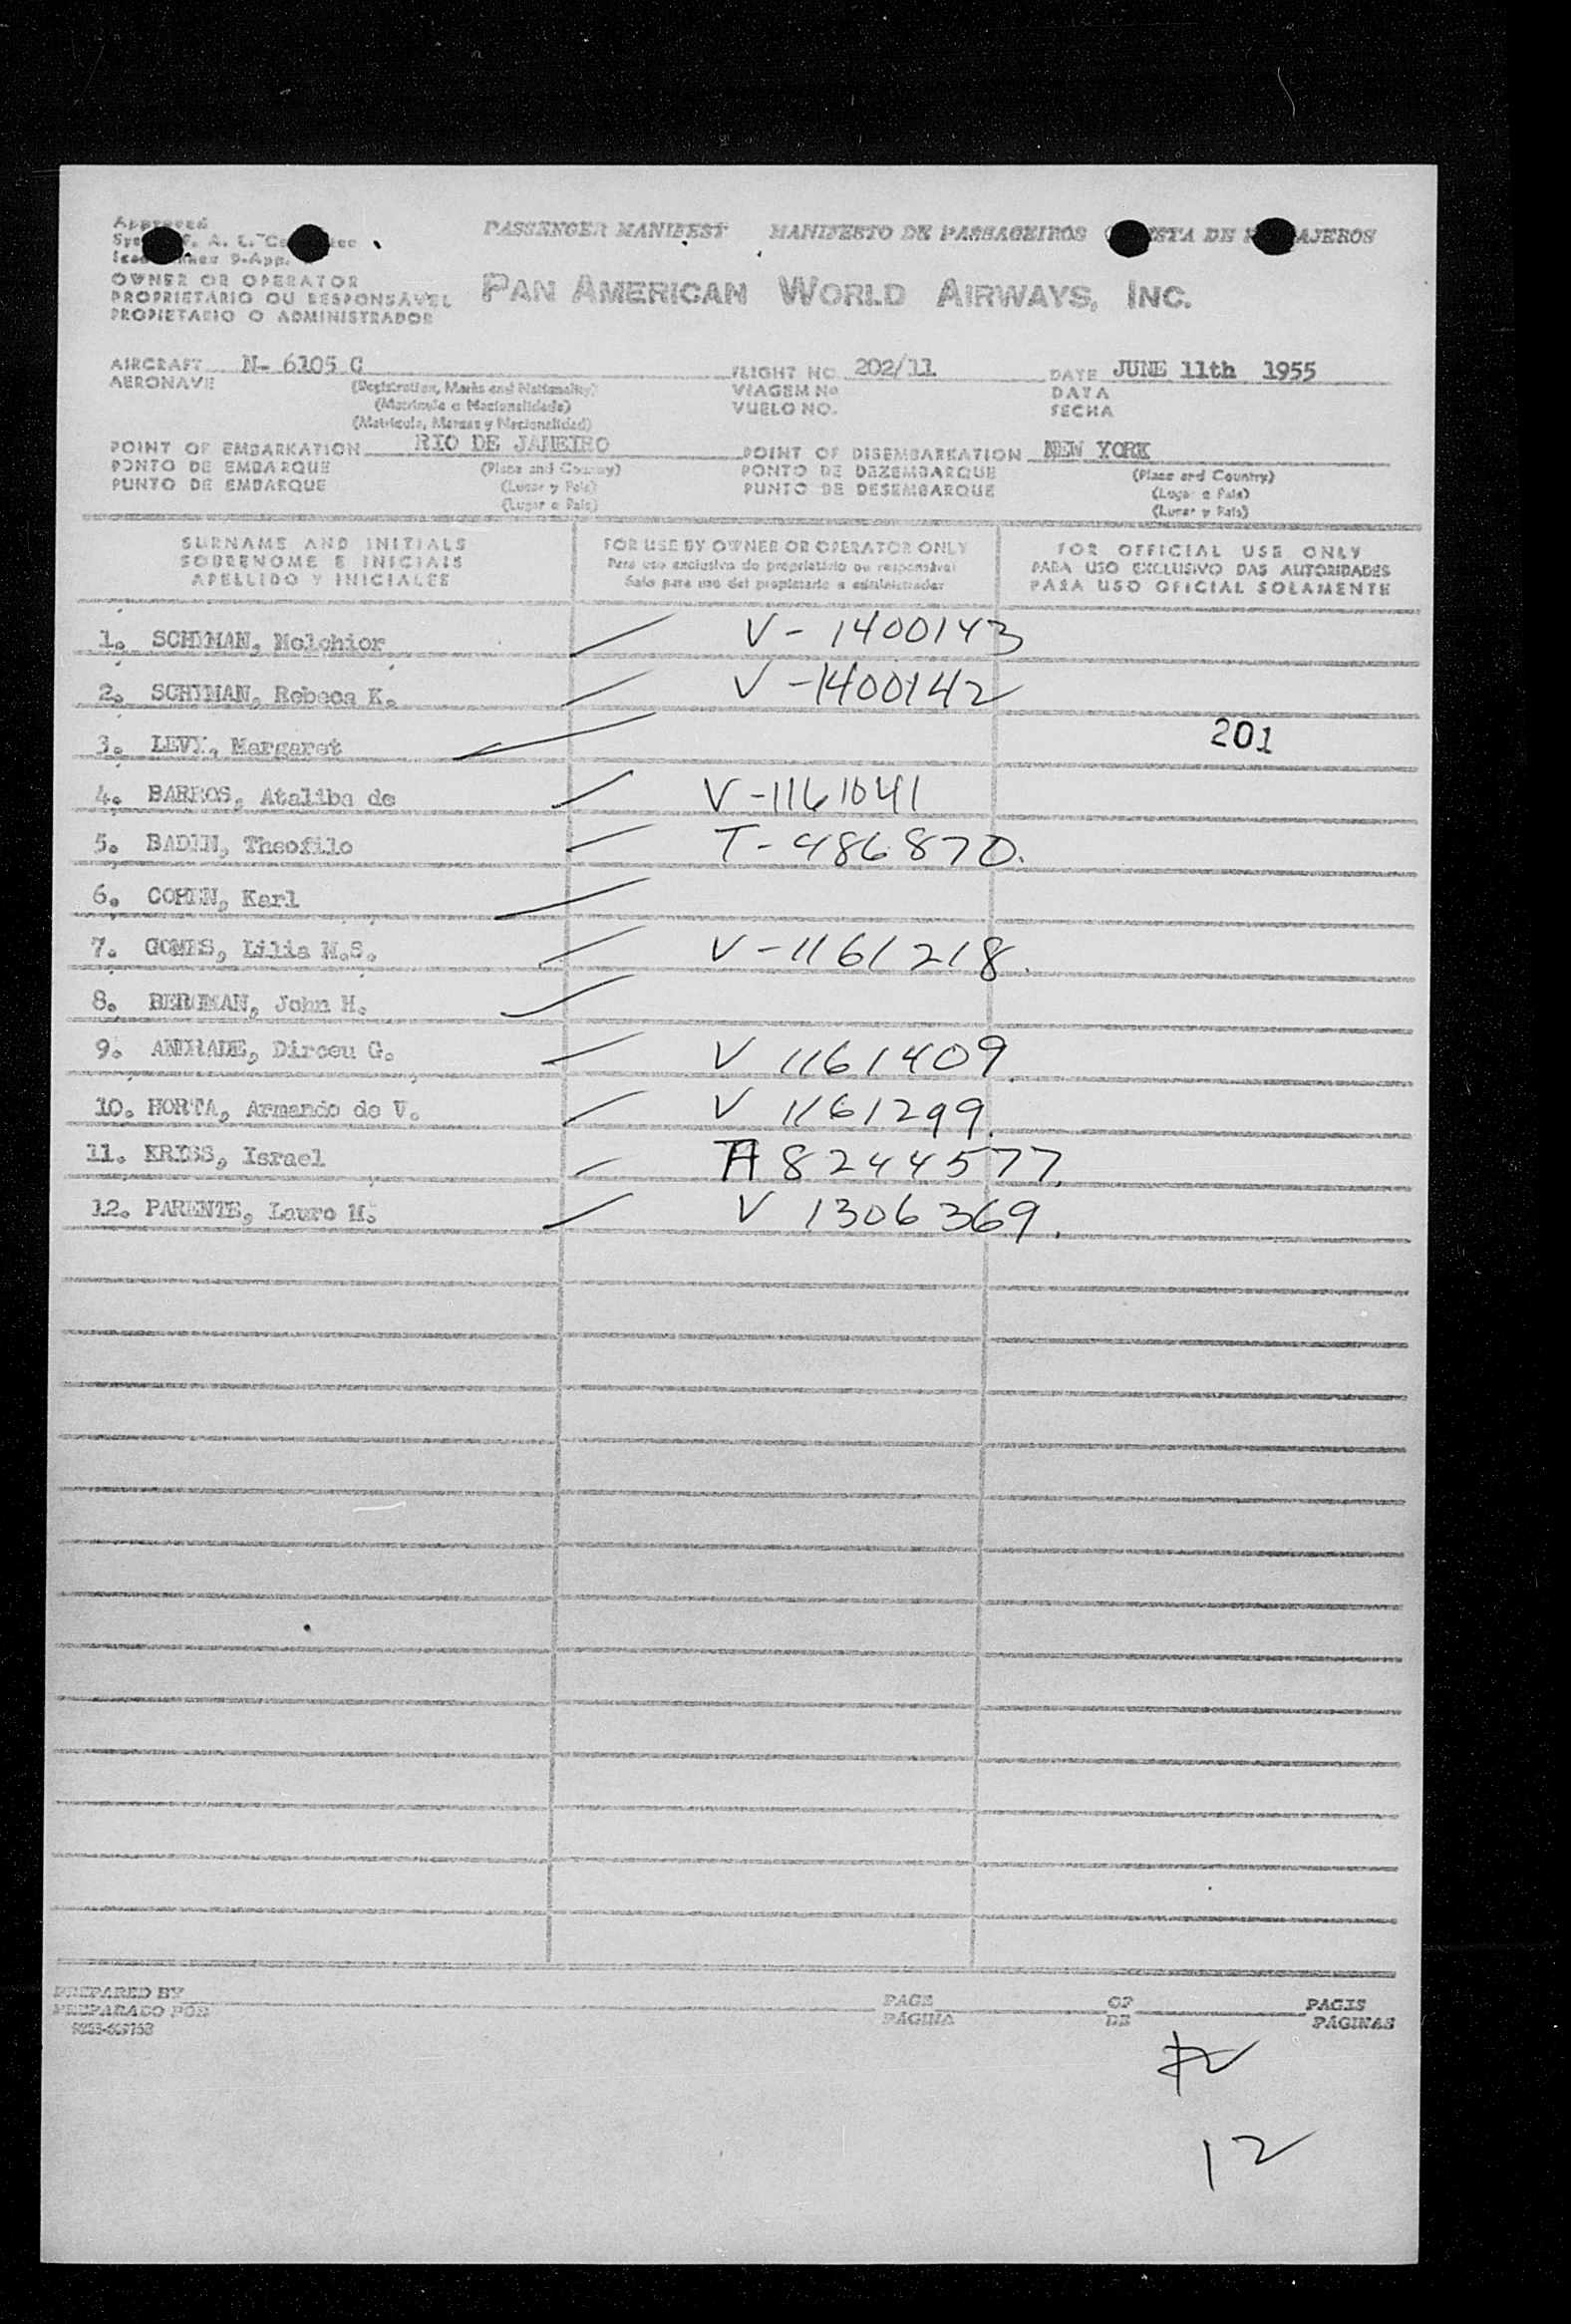 Approved
PASSENGER MANIFEST MANIFESTO DE PASSAGEIROS
OWNER OR OPERATOR
PROPRIETARIO OU RESPONSAVEL
PROPIETARIO O ADMINISTRADOR
PAN AMERICAN WORLD AIRWAYS, INC.
AIRCRAFT N- 6105 C FLIGHT NO 202/11 DATE JUNE 11th 1955
AERONAVE (Registration, Marks and Nationality) VIAGEM No DATA
(Matricula e Nacionalidade) VUELO NO. FECHA
(Matricula, Marcas y Nacionalidad)
POINT OF EMBARKATION RIO DE JANEIRO POINT OF DISEMBARKATION NEW YORK
PONTO DE EMBARQUE (Place and Country) PONTO DE DEZEMBARQUE (Place and Country)
PUNTO DE EMBARQUE (Lugar y Pais) PUNTO DE DESEMBARQUE (Lugar e Pais)
(Lugar e Pais) (Lugar y Pais)
SURNAME AND INITIALS FOR USE BY OWNER OR OPERATOR ONLY FOR OFFICIAL USE ONLY
SOBRENOME E INICIAIS Para uso exclusivo do proprietário ou responsável PARA USO EXCLUSIVO DAS AUTORIDADES
APELLIDO Y INICIALES Solo para uso del propietario o administrador PARA USO OFICIAL SOLAMENTE
1. SCHYMAN, Melchior V - 1400143
2. SCHYMAN, Rebeca K. V - 1400142
3. LEVY, Margaret 201
4. BARROS, Ataliba de V - 1161041
5. BADIN, Theofilo T - 486870.
6. COHEN, Karl
7. GOMES, Lilia M.S. V - 1161218.
8. BERGMAN, John H.
9. ANDRADE, Dirceu G. V 1161409.
10. HORTA, Armando de V. V 1161299.
11. KRISS, Israel A 8244577.
12. PARENTE, Lauro M. V 1306369.
PREPARED BY PAGE OF PAGES
PREPARADO POR PÁGINA DE PÁGINAS
12